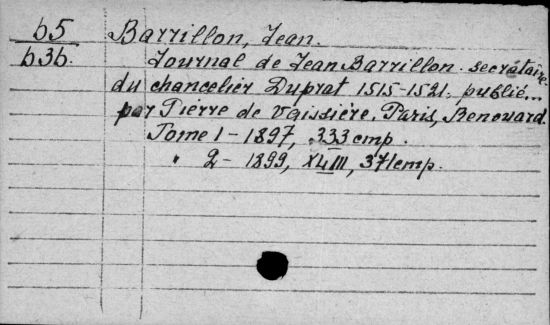 65 Barrillon, Jean.
636. Journal de Jean Barrillon secrétaire
du chancelier Duprat 1515-1521, publié...
par Pierre de Vaissière. Paris, Renouard.
Tome 1 - 1897, 333 стр.
" 2 - 1899, XLIII, 371 стр.